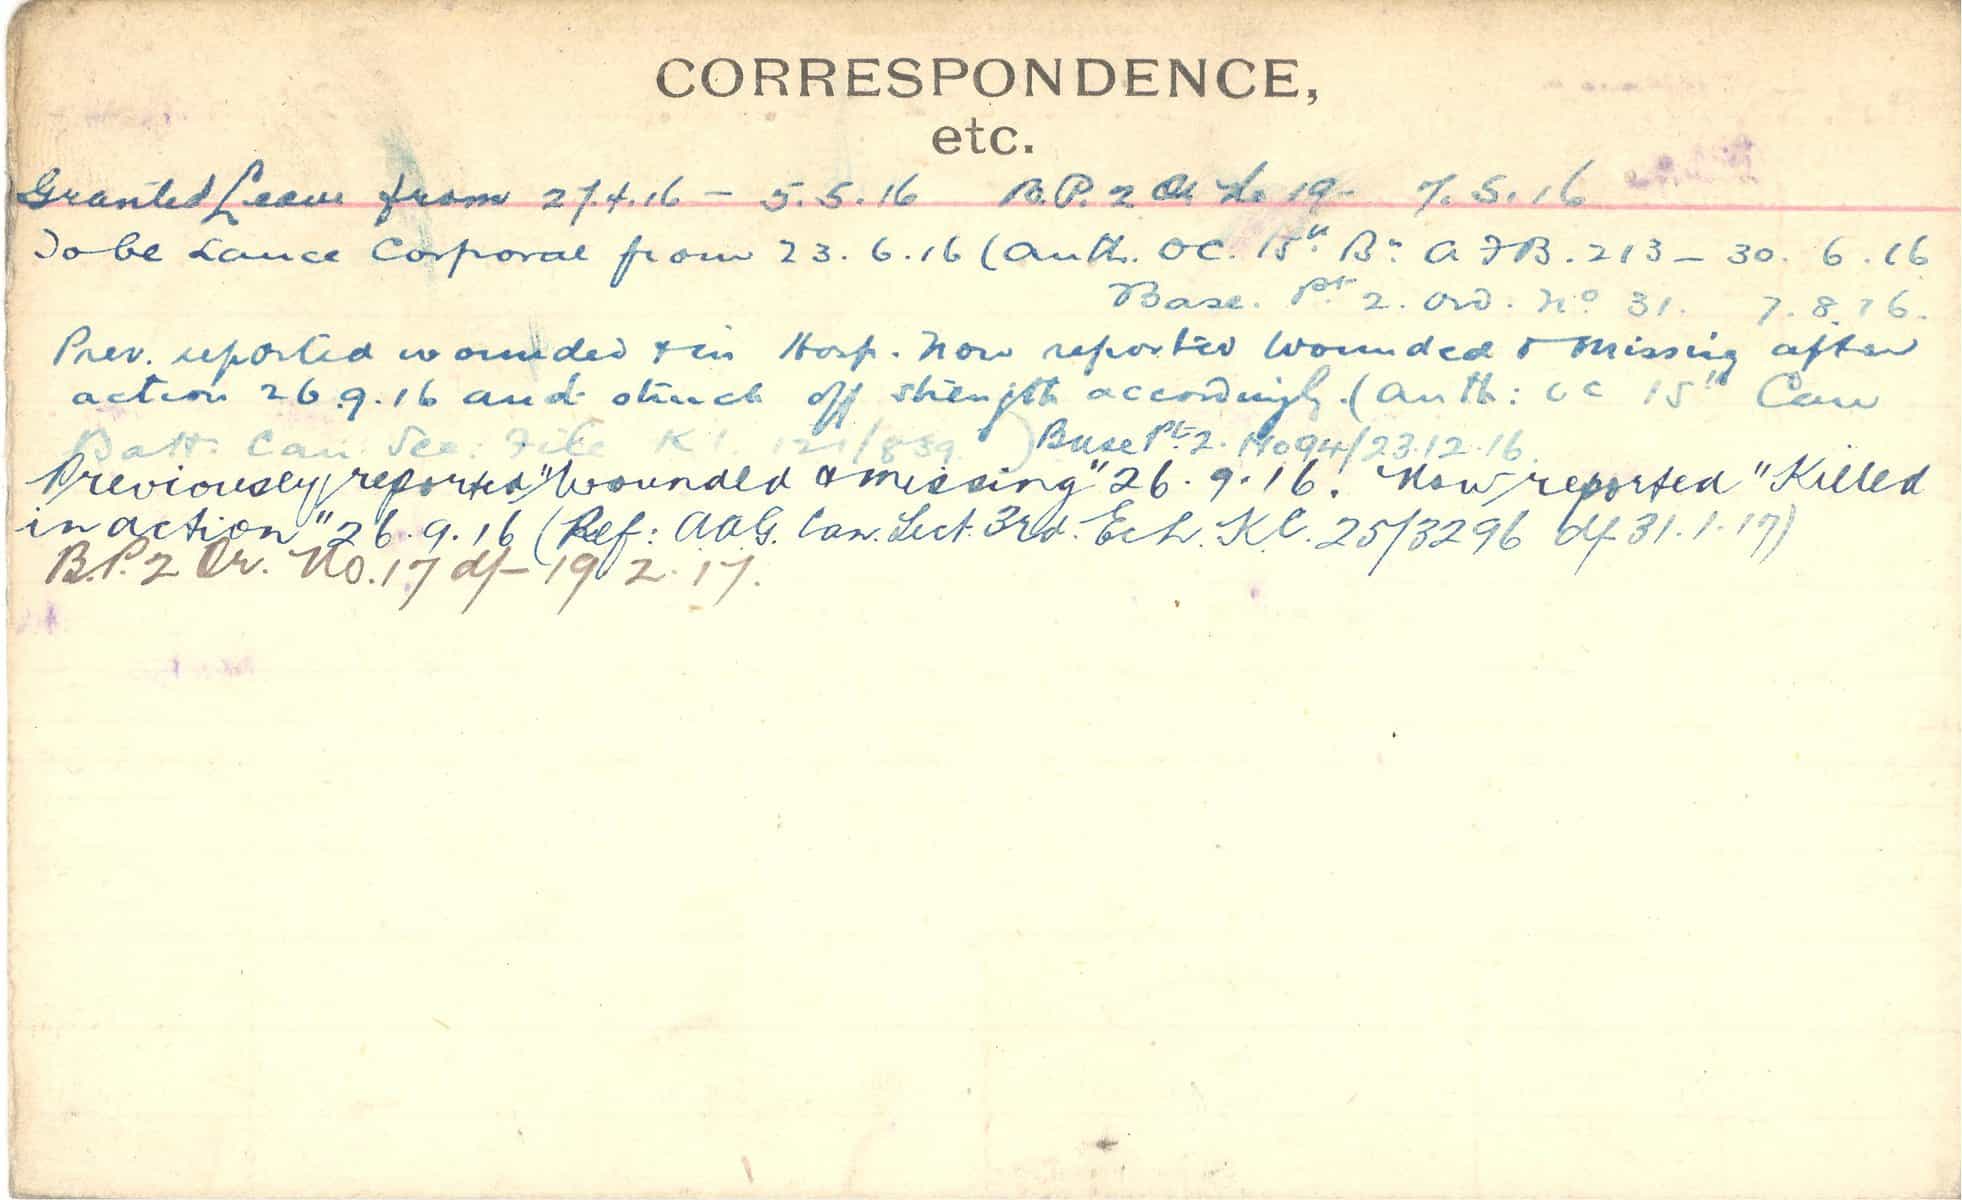 CORRESPONDENCE,
etc.
Granted Leave from 27.4.16 – 5.5.16 B.P. 2 Or No 19 - 7.5.16
To be Lance Corporal from 23.6.16 (Auth. OC. 15th Bn AFB. 213 – 30.6.16
Base. Pt 2. Ord. No 31. 7.8.16.
Prev. reported wounded & in Hosp. Now reported Wounded & Missing after
action 26.9.16 and struck off strength accordingly. (Auth: OC 15th Can
Batt. Can Sec. File K1. 121/839 ) Base Pt. 2. No94/23.12.16.
Previously reported "Wounded & missing" 26.9.16. Now reported "Killed
in action" 26.9.16 (Ref: AAG. Can. Sect. 3rd. Ech. K.C. 25/3296 df 31.1.17)
B.P. 2 Or. No. 17 df – 19 2.17.